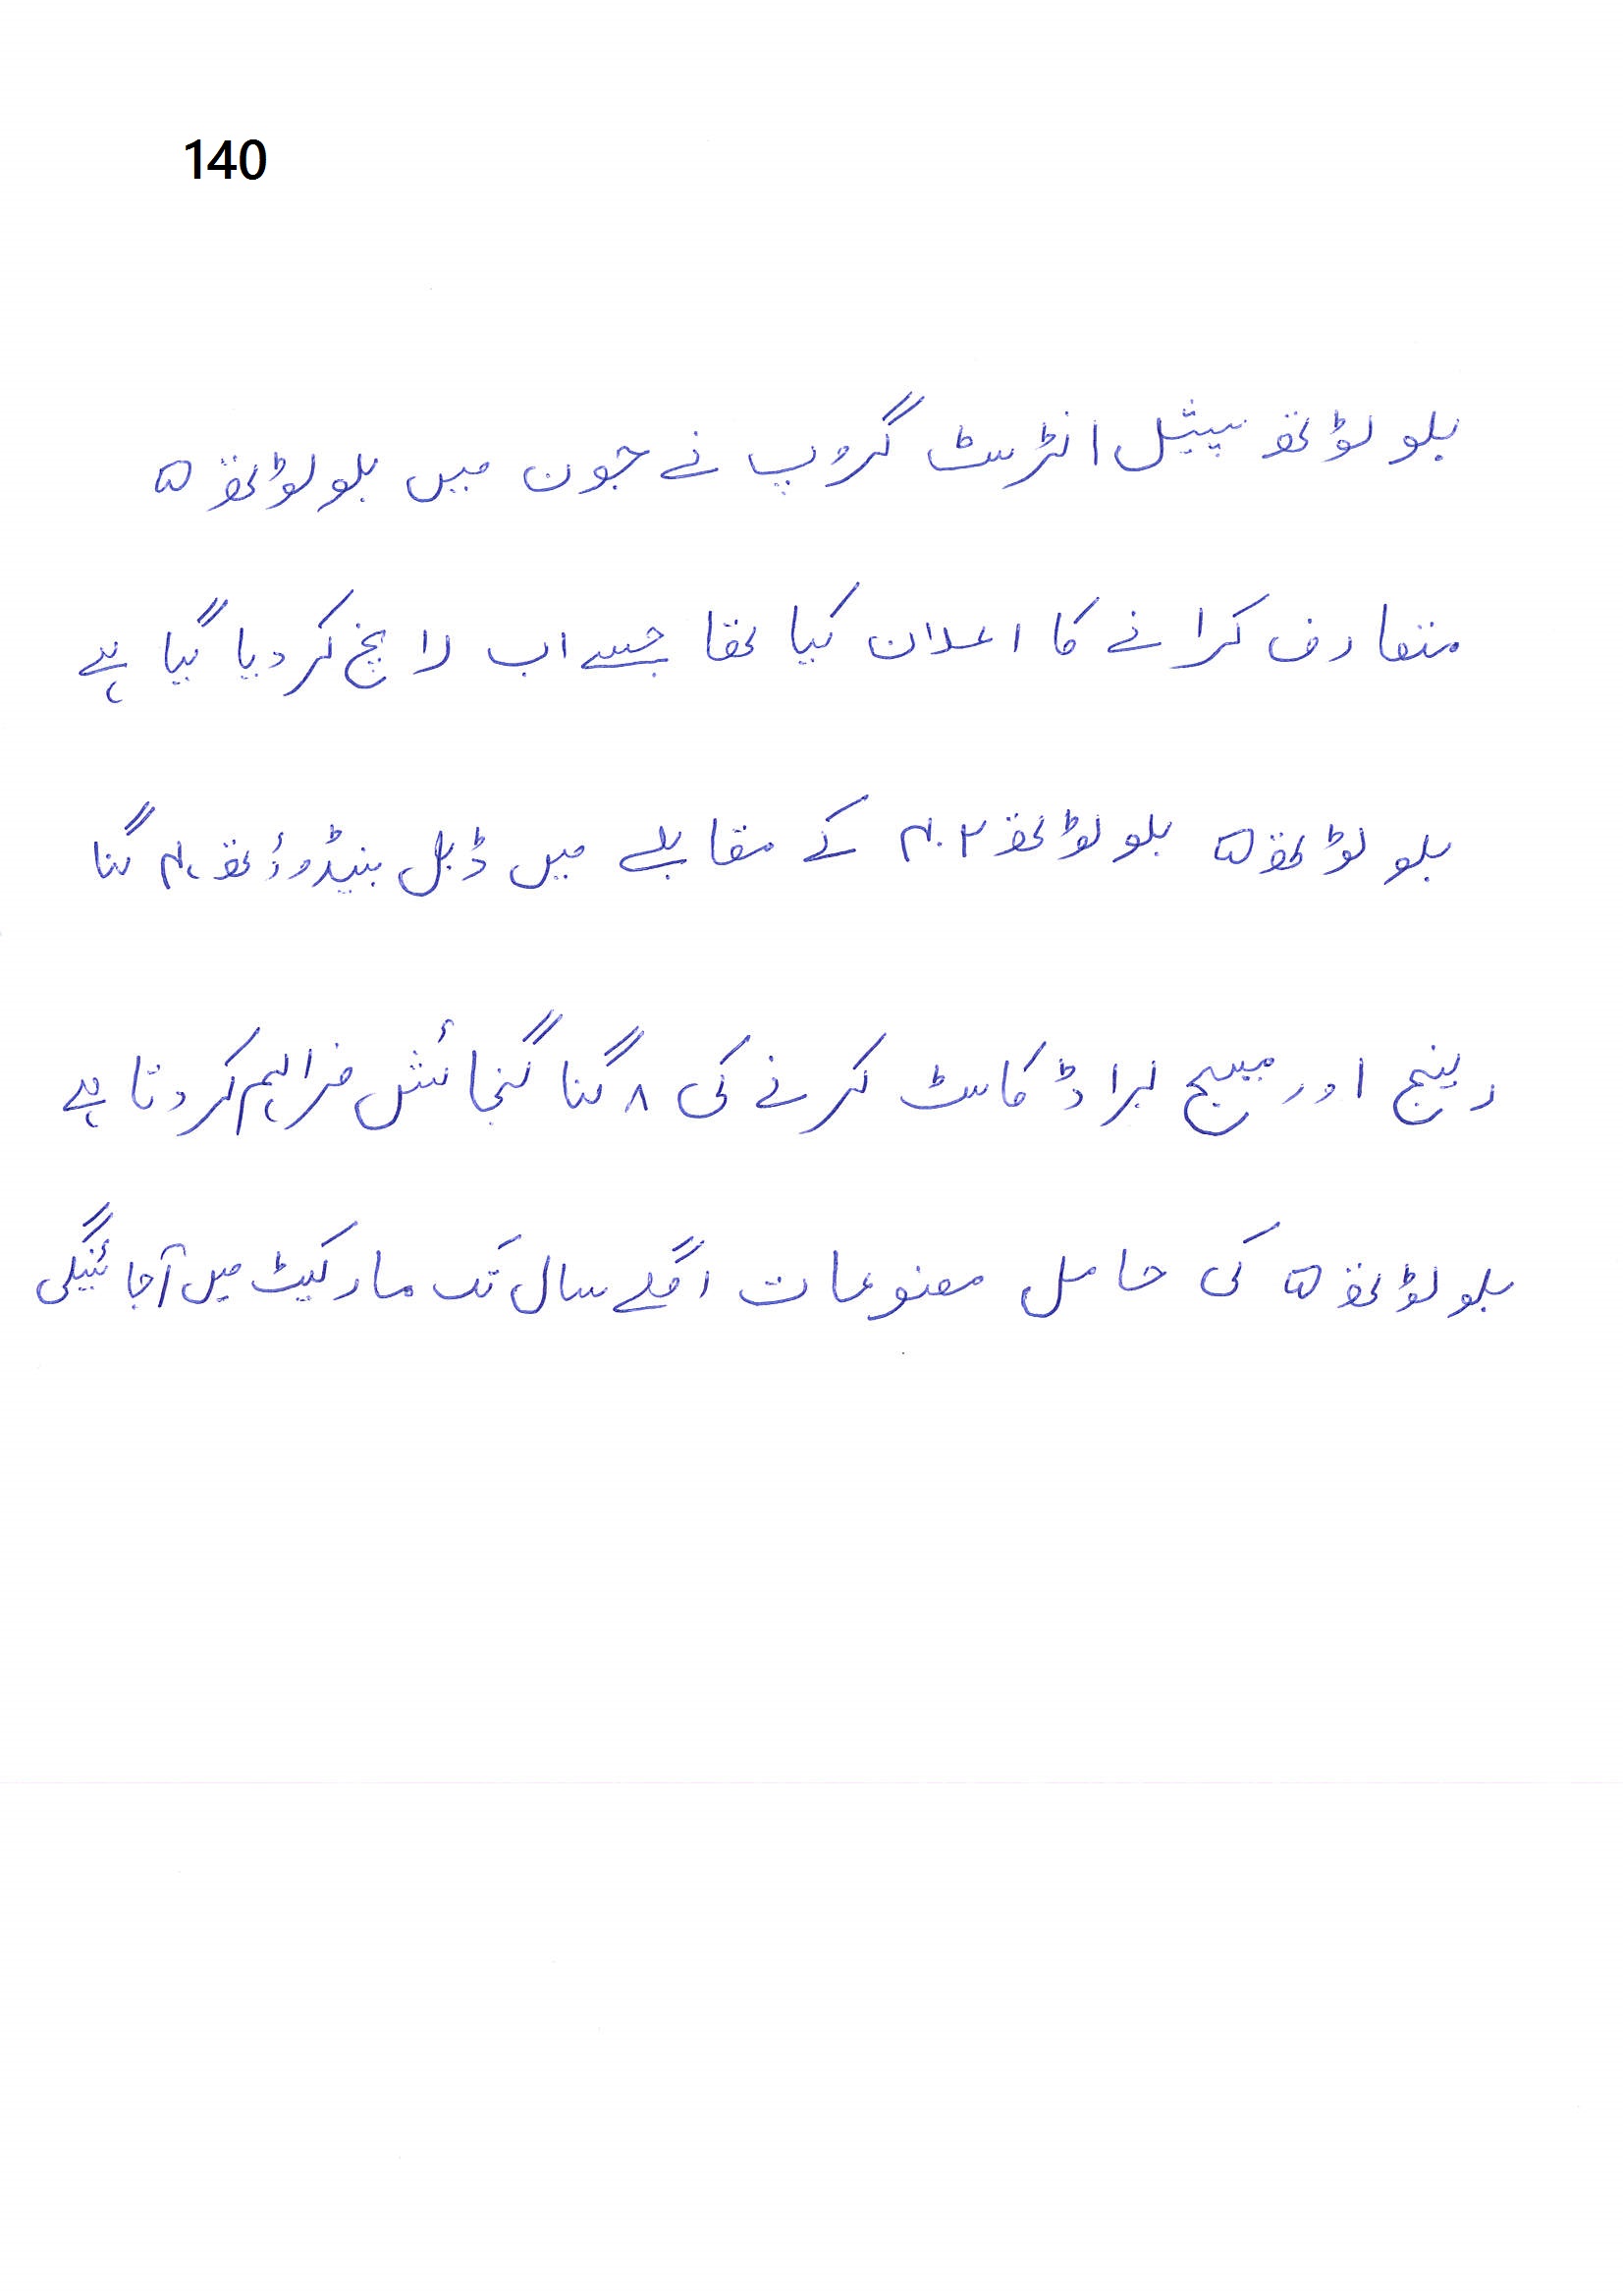 140
بلوٹوتھ سپیشل انٹرسٹ گروپ نے جون میں بلوٹوتھ ۵
متعارف کرانے کا اعلان کیا تھا جسے اب لانچ کر دیا گیا ہے
بلوٹوتھ ۵ بلوٹوتھ ۴.۲ کے مقابلے میں ڈبل بینڈوڈتھ، ۴ گنا
رینج اور میسج براڈ کاسٹ کرنے کی ۸ گنا گنجائش فراہم کرتا ہے
بلوٹوتھ ۵ کی حامل مصنوعات اگلے سال تک مارکیٹ میں آجائینگی